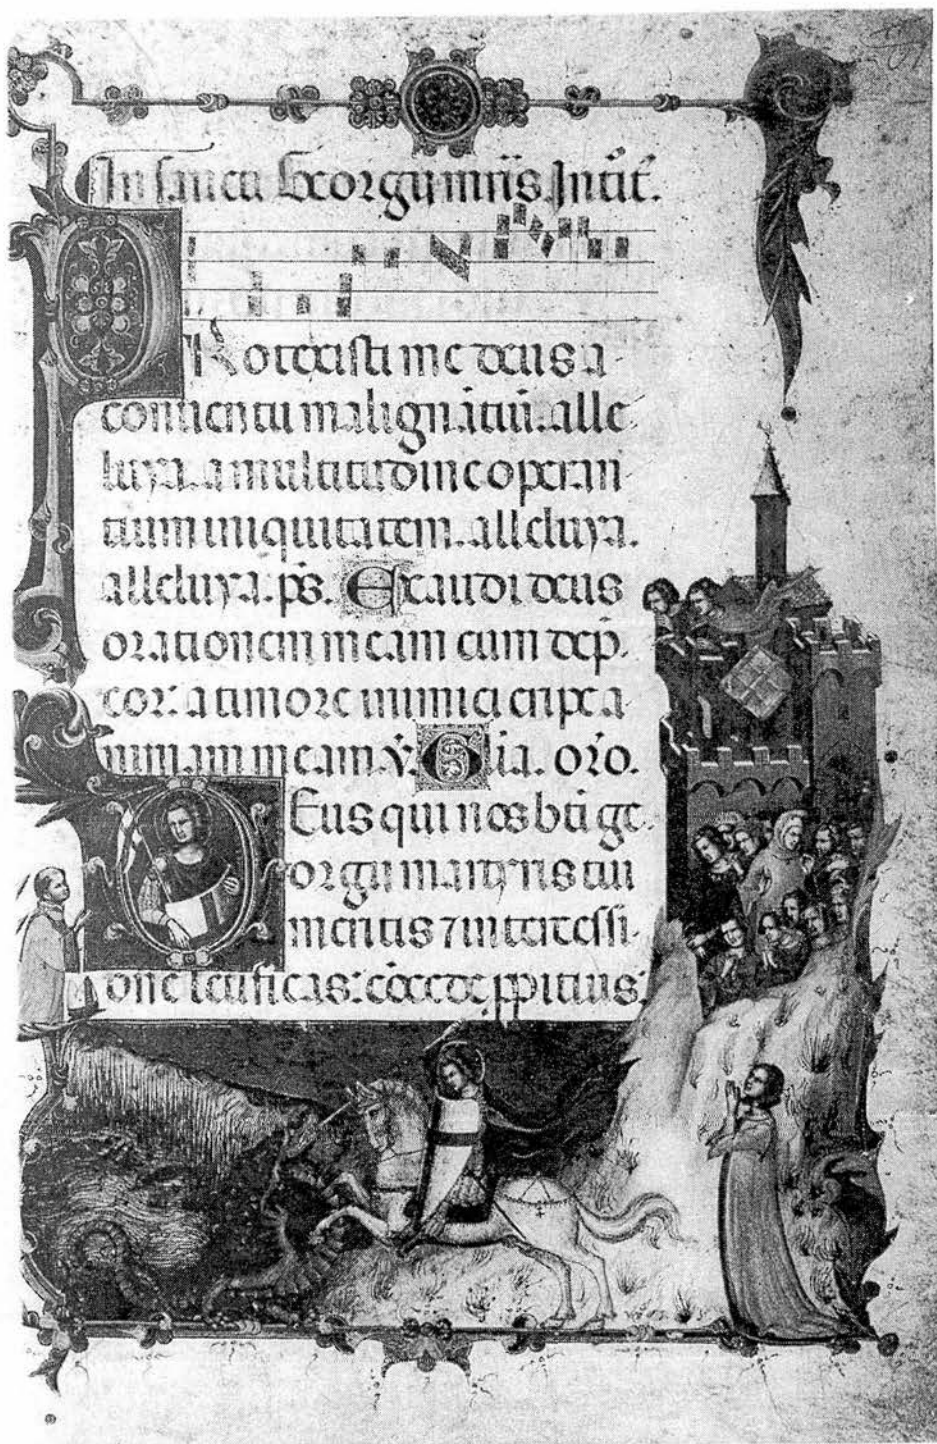 In sancti Georgii mris. Intit.
Rotexisti me deus a
conventu malignãtiũ. alle
luya. a multitudine operan
tium iniquitatem. alleluya.
alleluya. ps. Exaudi deus
orationem meam cum dep̃
cor: a timore inimici eripe a
nimam meam. ỹ. Gĩa. oro.
Eus qui nos bt̃i ge
orgii martyris tui
meritis ⁊ intercessi
one letificas: cõcede ppitius: